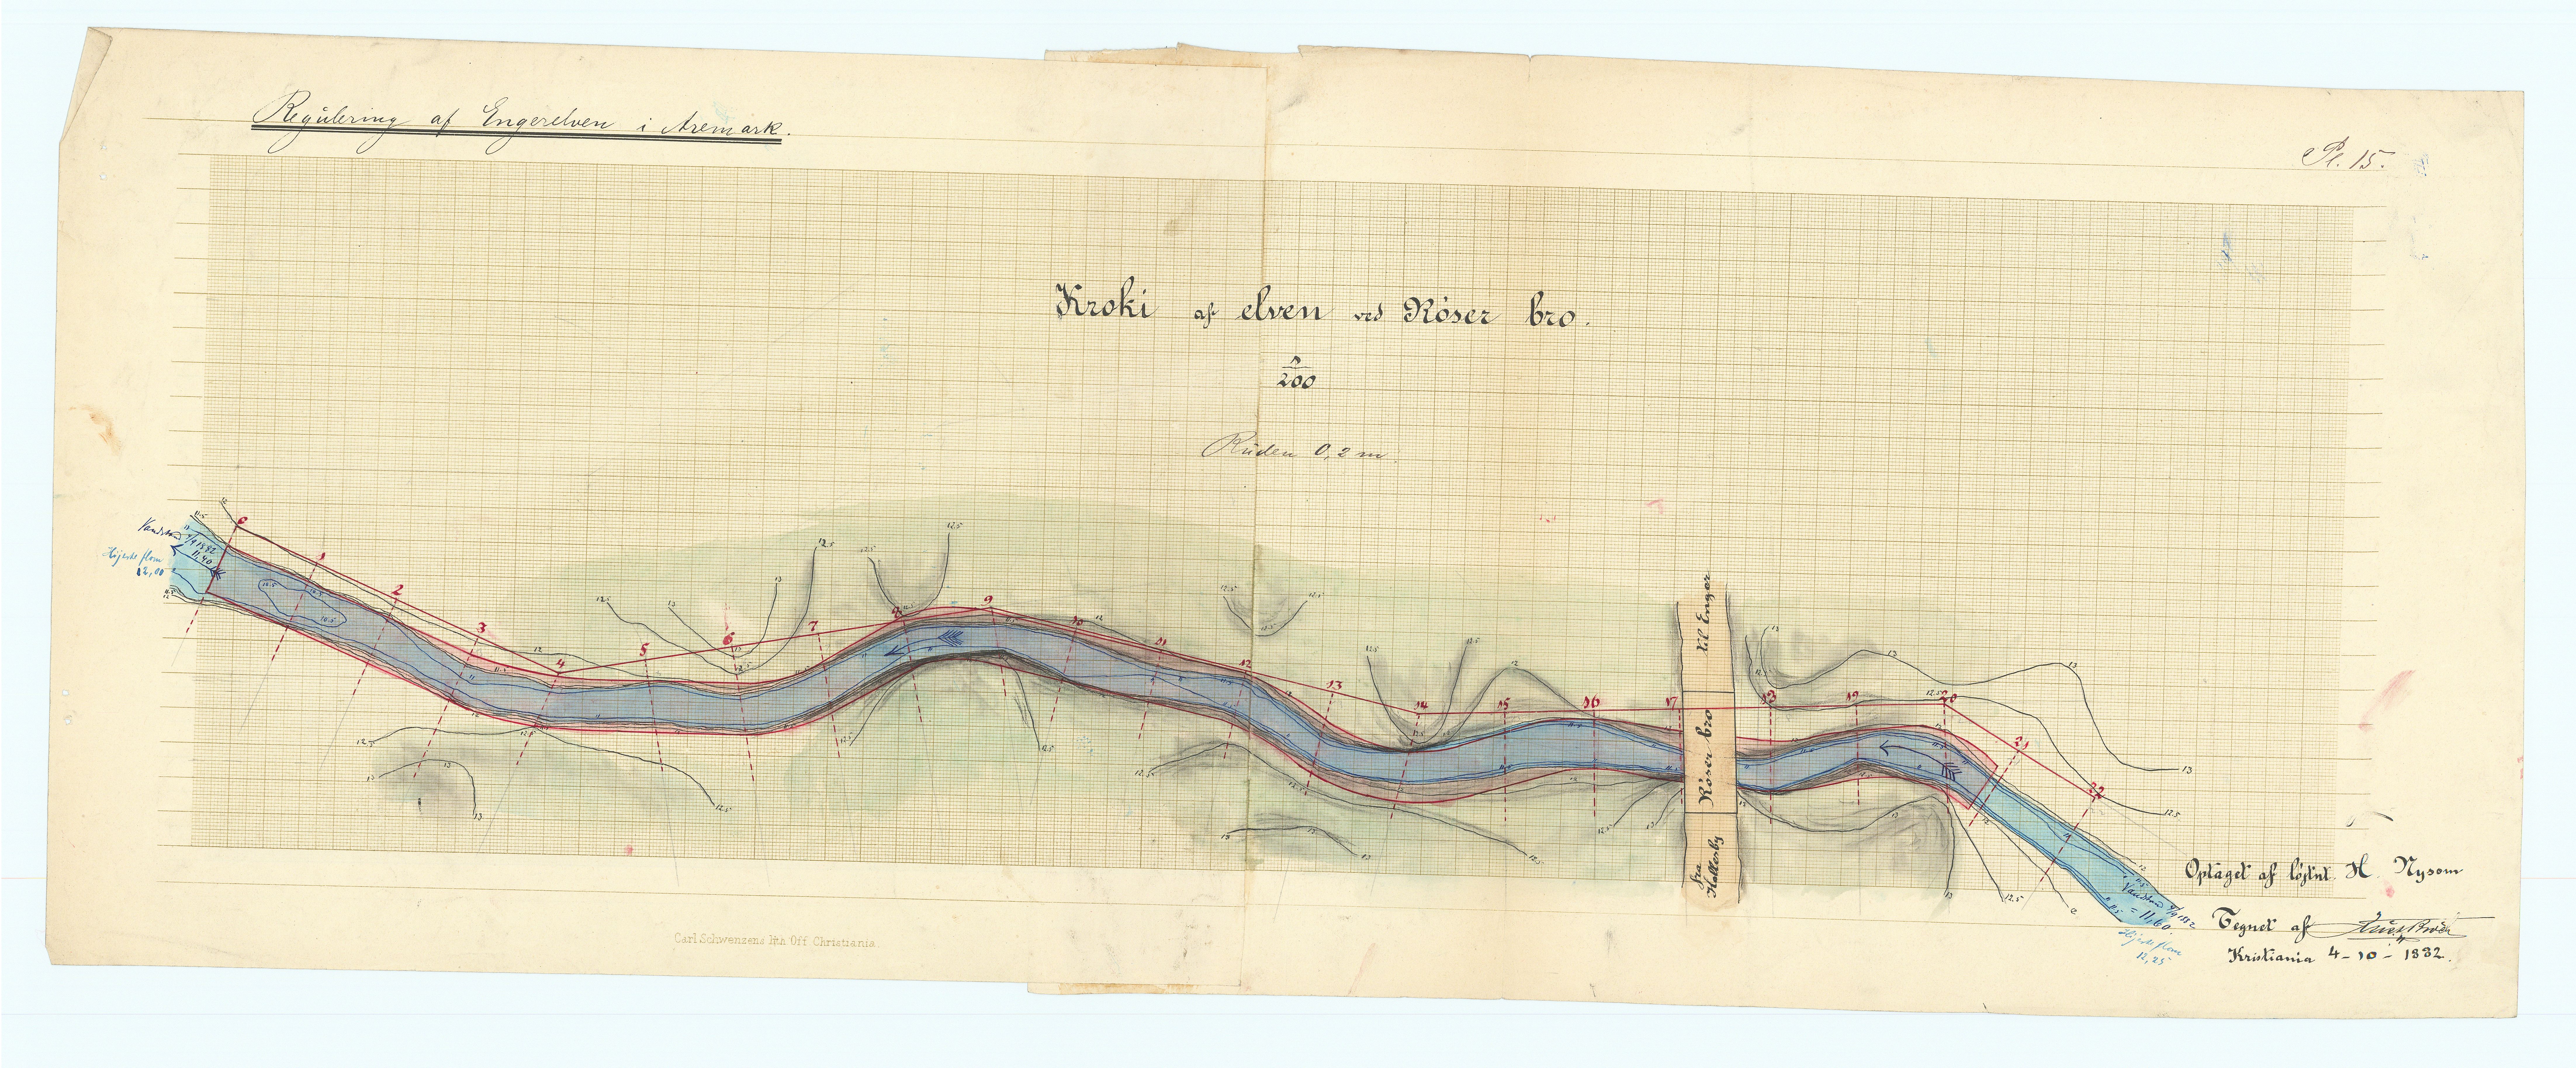 Regulering af Engerelven i Aremark.
Pl. 15.
Kroki af elven ved Röser bro.
1/200
Ruden 0,2 m.
Vandstand 4/9 1882
11,40
Højeste flom
12,00
0 1 2 3 4 5 6 7 8 9 10 11 12 13 14 15 16 17 18 19 20 21 22
til Enger
Röser bro
fra Hallesby
Vandstand 4/9 1882
= 11,60
Højeste flom
12,25
Optaget af löjtnt. H. Nysom
Tegnet af
Kristiania 4-10-1882.
Carl Schwenzens lith Off Christiania.